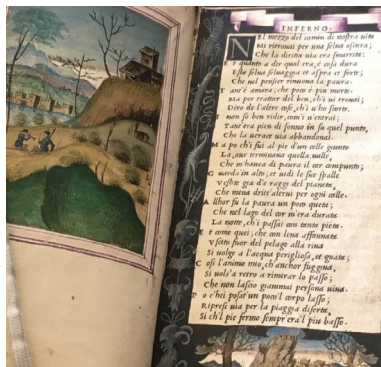 INFERNO.
NEl mezzo del camin di nostra uita
Mi ritrouai per una selua oscura;
Che la diritta uia era smarrita:
E quanto a dir qual era, è cosa dura
Esta selua seluaggia et aspra et forte;
Che nel pensier rinuoua la paura.
Tant'è amara; che poco è piu morte.
Ma per trattar del ben, ch'i ui trouai;
Diro de l'altre cose, ch'i u'ho scorte.
I non so ben ridir, com'i u'entrai;
Tant'era pien di sonno in su quel punto,
Che la uerace uia abbandonai.
Ma po ch'i fui al pie d'un colle giunto
La, oue terminaua quella ualle,
Che m'hauea di paura il cor compunto;
Guarda'in alto; et uidi le sue spalle
Vestite gia de raggi del pianeta,
Che mena dritt'altrui per ogni calle.
Allhor fu la paura un poco queta;
Che nel lago del cor m'era durata
La notte, ch'i passai con tanta pieta.
E come quei; che con lena affannata
Vscito fuor del pelago alla riua
Si uolge a l'acqua perigliosa, et guata;
Cosi l'animo mio, ch'anchor fuggiua,
Si uols'a retro a rimirar lo passo;
Che non lascio giammai persona uiua.
Po c'hei posat'un poco'l corpo lasso;
Ripresi uia per la piaggia diserta,
Si ch'l pie fermo sempr'era'l piu basso.